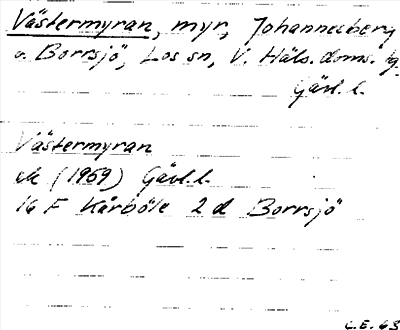 Västermyran, myr, Johannesberg
o. Borrsjö, Los sn, V. Häls. doms. tg
Gävl. l.
Västermyran
ek (1959) Gävl. l.
16 F Kårböle 2 d Borrsjö
C.E. 63